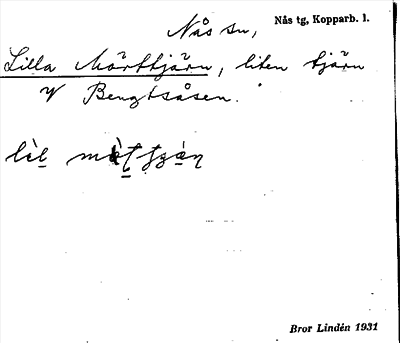 Nås sn,
Nås tg, Kopparb. l.
Lilla Mörttjärn, liten tjärn
V Bengtsåsen.
Bror Lindén 1931